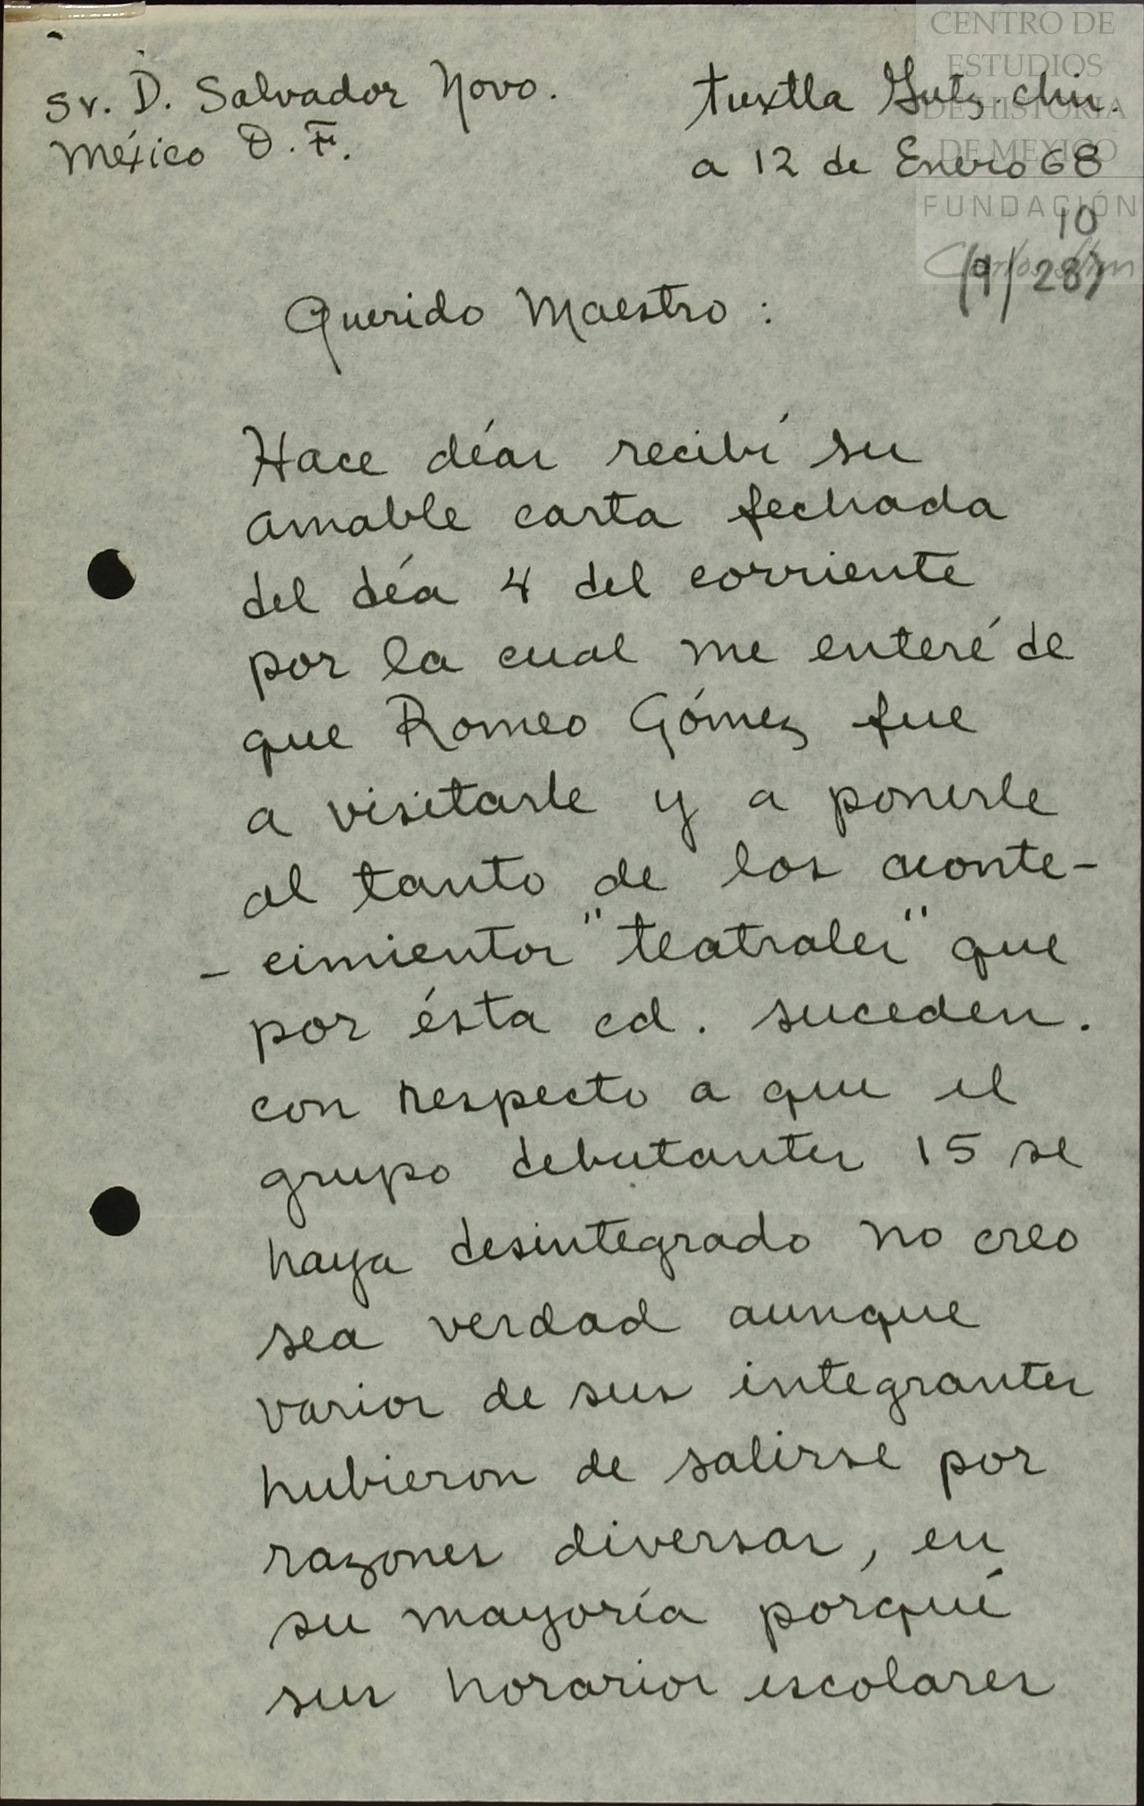 Sr. D. Salvador Novo.
México D. F.
Tuxtla Gutz. chis.
a 12 de Enero 68
CENTRO DE
ESTUDIOS
DE HISTORIA
DE MEXICO
FUNDACIÓN
Carlos Slim
10
(1/28)
Querido Maestro :
Hace días recibí su
amable carta fechada
del día 4 del corriente
por la cual me enteré de
que Romeo Gómez fue
a visitarle y a ponerle
al tanto de los aconte-
- cimientos "teatrales" que
por ésta cd. suceden.
con respecto a que el
grupo debutantes 15 se
haya desintegrado no creo
sea verdad aunque
varios de sus integrantes
hubieron de salirse por
razones diversas, en
su mayoría porqué
sus horarios escolares